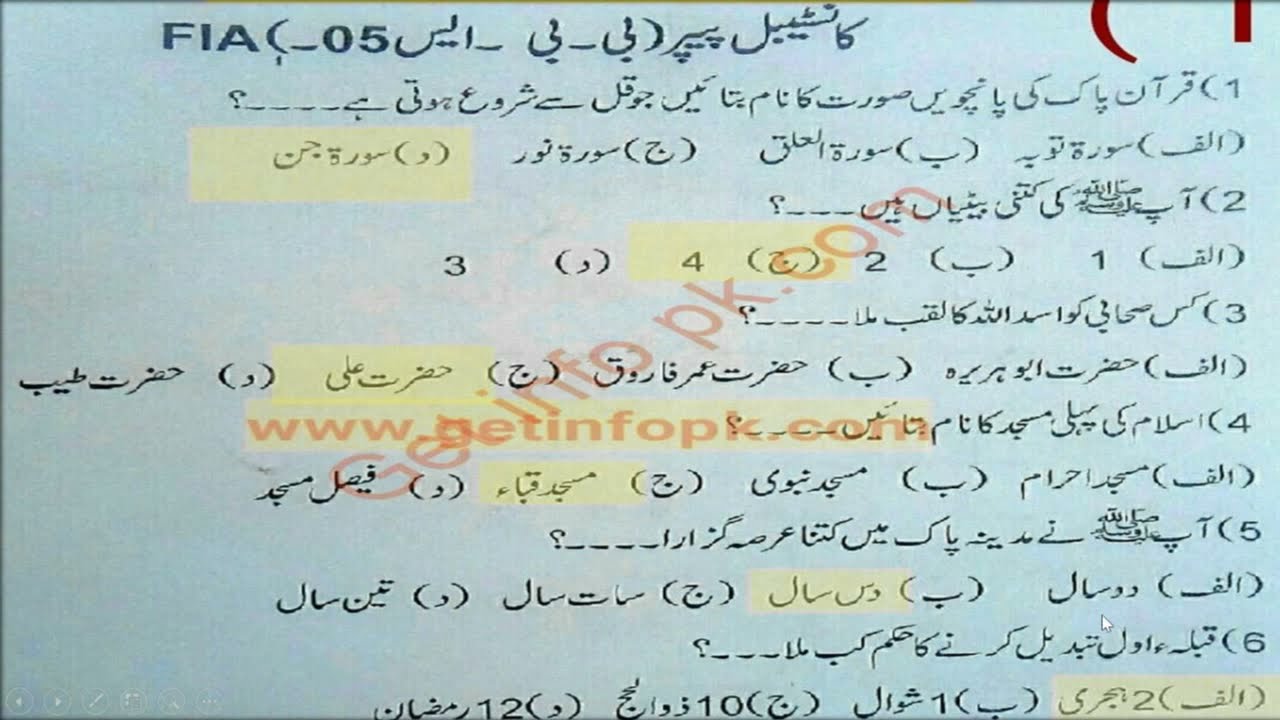 1)
کانسٹیبل پیپر (بی۔بی ۔ایس05۔)FIA
1) قرآن پاک کی پانچویں صورت کا نام بتائیں جو قل سے شروع ہوتی ہے۔۔۔۔؟
(الف) سورۃ توبہ (ب) سورۃ العلق (ج) سورۃ نور (د) سورۃ جن
2) آپ ﷺ کی کتنی بیٹیاں ہیں۔۔۔۔؟
(الف) 1 (ب) 2 (ج) 4 (د) 3
3) کس صحابی کو اسد اللہ کا لقب ملا۔۔۔۔؟
(الف) حضرت ابو ہریرہ (ب) حضرت عمر فاروق (ج) حضرت علی (د) حضرت طیب
4) اسلام کی پہلی مسجد کا نام بتائیں۔۔۔۔؟
www.getinfopk.com
(الف) مسجد احرام (ب) مسجد نبوی (ج) مسجد قباء (د) فیصل مسجد
5) آپ ﷺ نے مدینہ پاک میں کتنا عرصہ گزارا۔۔۔۔؟
(الف) دو سال (ب) دس سال (ج) سات سال (د) تین سال
6) قبلہء اول تبدیل کرنے کا حکم کب ملا۔۔۔۔؟
(الف) 2 ہجری (ب) 1 شوال (ج) 10 ذوالحج (د) 12 رمضان
Get info pk.com